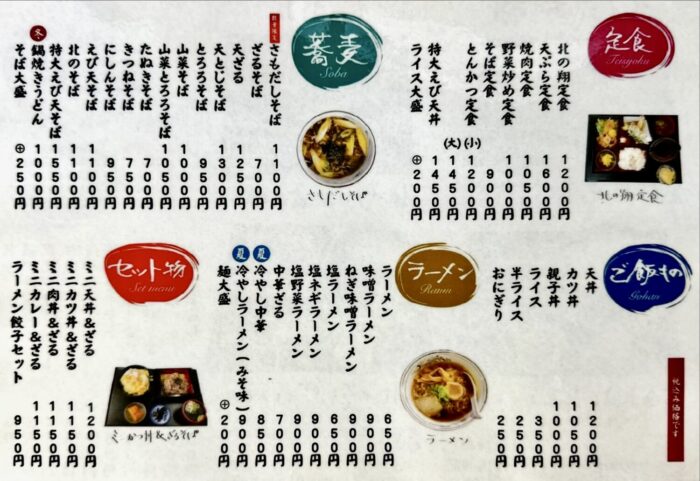 定食
Teisyoku
北の翔定食 1200円
天ぷら定食 1650円
焼肉定食 1050円
野菜炒め定食 1000円
そば定食 900円
とんかつ定食 (小) 1200円
(大) 1450円
特大えび天丼 1450円
ライス大盛 ⊕200円
北の翔定食
蕎麦
Soba
数量限定
さもだしそば 1100円
ざるそば 700円
天ざる 1250円
天とじそば 1300円
とろろそば 950円
山菜そば 850円
山菜とろろそば 1050円
たぬきそば 700円
きつねそば 750円
にしんそば 950円
えび天そば 1100円
北のそば 1100円
特大えび天そば 1550円
冬 鍋焼きうどん 1100円
そば大盛 ⊕250円
さもだしそば
ご飯もの
Gohan
天丼 1200円
カツ丼 1050円
親子丼 1000円
ライス 350円
半ライス 250円
おにぎり 250円
税込み価格です
ラーメン
Ramen
ラーメン 650円
味噌ラーメン 900円
ねぎ味噌ラーメン 900円
塩ラーメン 650円
塩ネギラーメン 900円
塩野菜ラーメン 900円
中華ざる 700円
夏 冷やし中華 850円
夏 冷やしラーメン(みそ味) 900円
麺大盛 ⊕200円
ラーメン
セット物
Set menu
ミニ天丼&ざる 1200円
ミニカツ丼&ざる 1150円
ミニ肉丼&ざる 1150円
ミニカレー&ざる 1150円
ラーメン餃子セット 950円
ミニかつ丼&ざるそば